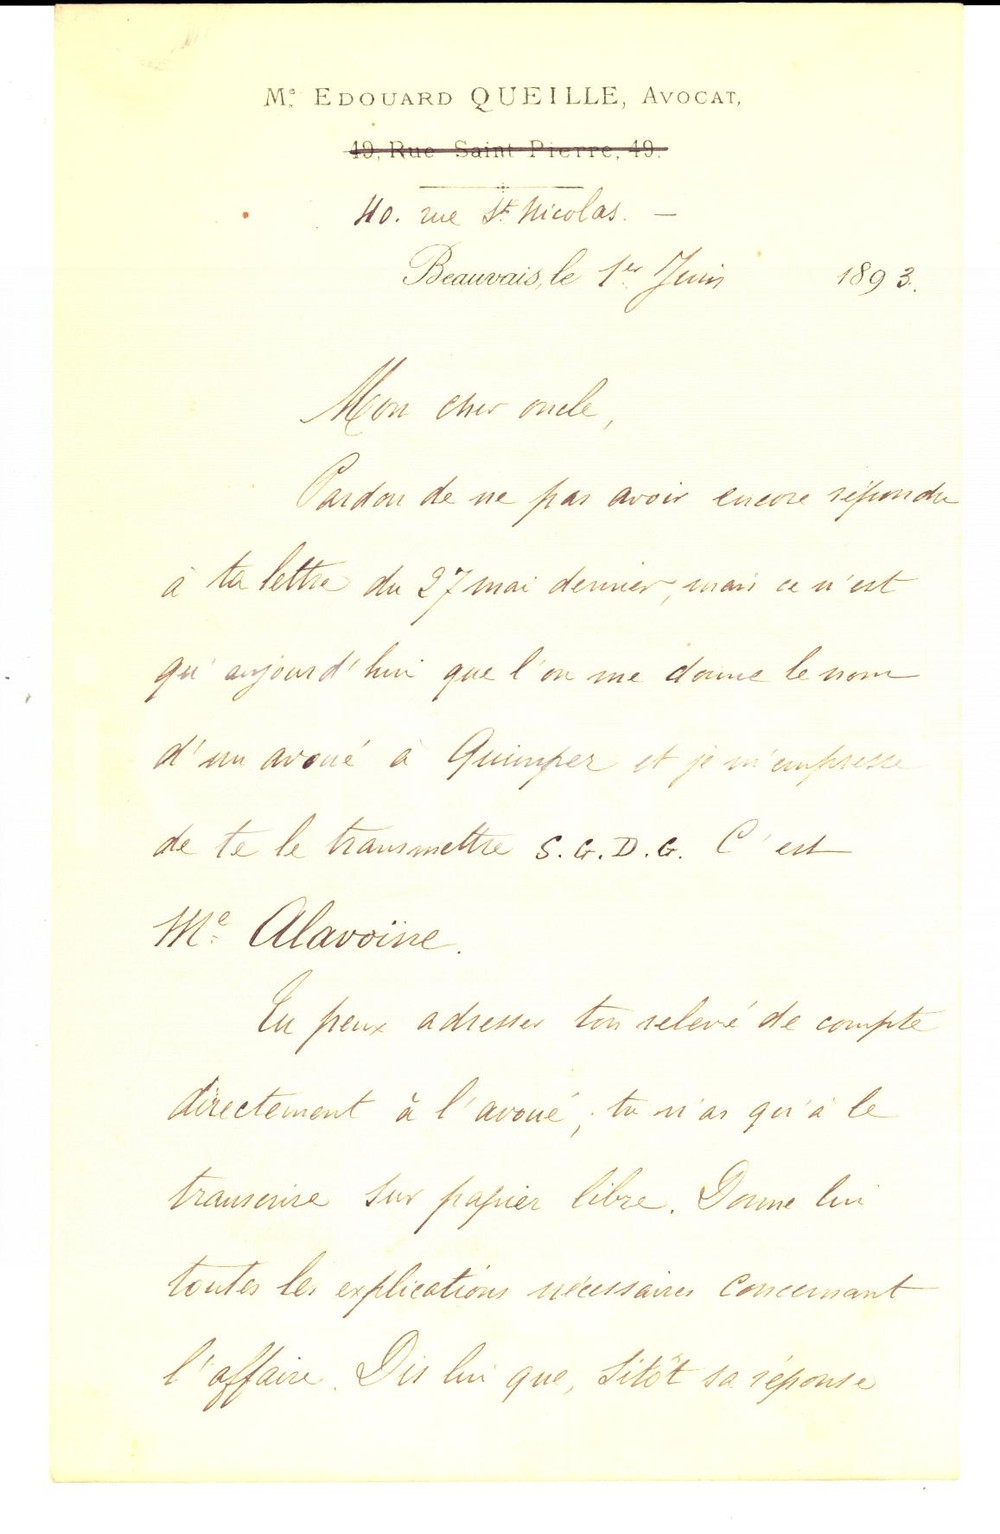 Me. EDOUARD QUEILLE, AVOCAT,
49, Rue Saint-Pierre, 49.
40. rue St. Nicolas. —
Beauvais, le 1er Juin 1893.
Mon cher oncle,
Pardon de ne pas avoir encore répondu
à ta lettre du 27 mai dernier, mais ce n'est
qu'aujourd'hui que l'on me donne le nom
d'un avoué à Quimper et je m'empresse
de te le transmettre S.G.D.G. C'est
Me Alavoine.
Tu peux adresser ton relevé de compte
directement à l'avoué; tu n'as qu'à le
transcrire sur papier libre. Donne lui
toutes les explications nécessaires concernant
l'affaire. Dis lui que, sitôt sa réponse